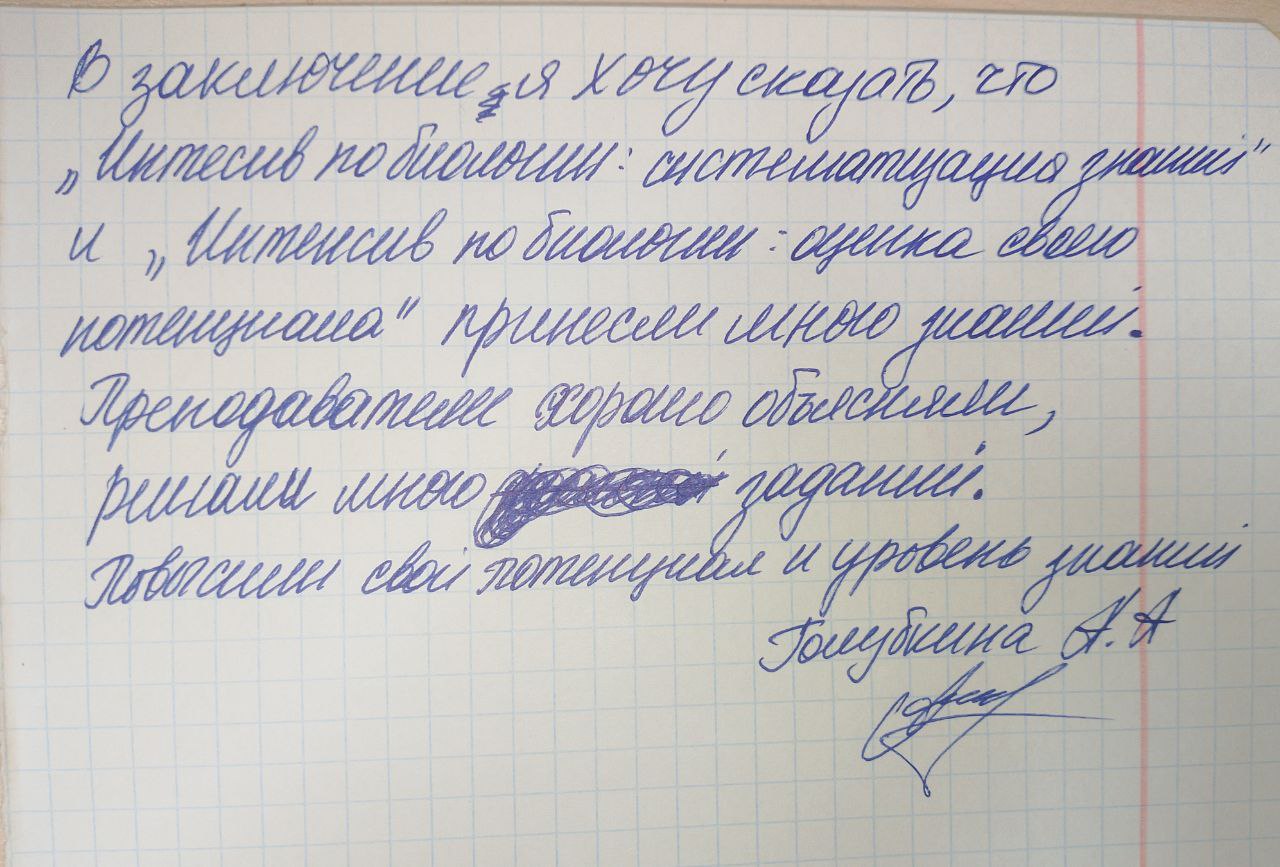 В заключение я хочу сказать, что
„Интесив по биологии: систематизация знаний"
и „Интенсив по биологии: оценка своего
потенциала" принесли много знаний.
Преподаватели хорошо объясняли,
решали много заданий.
Повысили свой потенциал и уровень знаний
Голубкина А.А